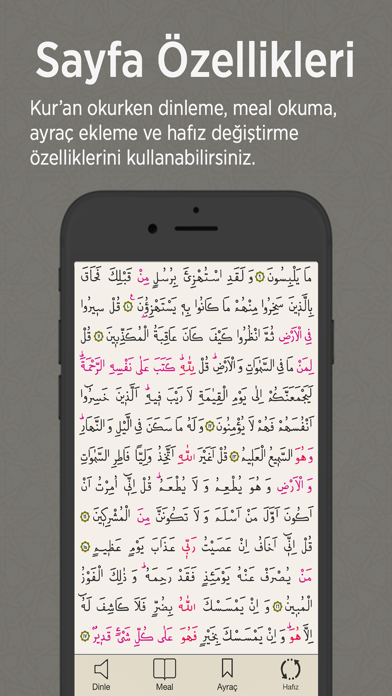 Sayfa Özellikleri
Kur'an okurken dinleme, meal okuma,
ayraç ekleme ve hafız değiştirme
özelliklerini kullanabilirsiniz.
مَا يَلْبِسُونَ ﴿٩﴾ وَلَقَدِ اسْتُهْزِئَ بِرُسُلٍ مِنْ قَبْلِكَ فَحَاقَ
بِالَّذِينَ سَخِرُوا مِنْهُمْ مَا كَانُوا بِهِ يَسْتَهْزِؤُنَ ﴿١٠﴾ قُلْ سِيرُوا
فِي الْاَرْضِ ثُمَّ انْظُرُوا كَيْفَ كَانَ عَاقِبَةُ الْمُكَذِّبِينَ ﴿١١﴾ قُلْ
لِمَنْ مَا فِي السَّمٰوَاتِ وَالْاَرْضِ قُلْ لِلّٰهِ كَتَبَ عَلٰى نَفْسِهِ الرَّحْمَةَ
لَيَجْمَعَنَّكُمْ اِلٰى يَوْمِ الْقِيٰمَةِ لَا رَيْبَ فِيهِ اَلَّذِينَ خَسِرُوا
اَنْفُسَهُمْ فَهُمْ لَا يُؤْمِنُونَ ﴿١٢﴾ وَلَهُ مَا سَكَنَ فِي الَّيْلِ وَالنَّهَارِ
وَهُوَ السَّمِيعُ الْعَلِيمُ ﴿١٣﴾ قُلْ اَغَيْرَ اللّٰهِ اَتَّخِذُ وَلِيًّا فَاطِرِ السَّمٰوَاتِ
وَالْاَرْضِ وَهُوَ يُطْعِمُ وَلَا يُطْعَمُ قُلْ اِنِّي اُمِرْتُ اَنْ
اَكُونَ اَوَّلَ مَنْ اَسْلَمَ وَلَا تَكُونَنَّ مِنَ الْمُشْرِكِينَ ﴿١٤﴾
قُلْ اِنِّي اَخَافُ اِنْ عَصَيْتُ رَبِّي عَذَابَ يَوْمٍ عَظِيمٍ ﴿١٥﴾
مَنْ يُصْرَفْ عَنْهُ يَوْمَئِذٍ فَقَدْ رَحِمَهُ وَذٰلِكَ الْفَوْزُ
الْمُبِينُ ﴿١٦﴾ وَاِنْ يَمْسَسْكَ اللّٰهُ بِضُرٍّ فَلَا كَاشِفَ لَهُ
اِلَّا هُوَ وَاِنْ يَمْسَسْكَ بِخَيْرٍ فَهُوَ عَلٰى كُلِّ شَيْءٍ قَدِيرٌ ﴿١٧﴾
Dinle Meal Ayraç Hafız